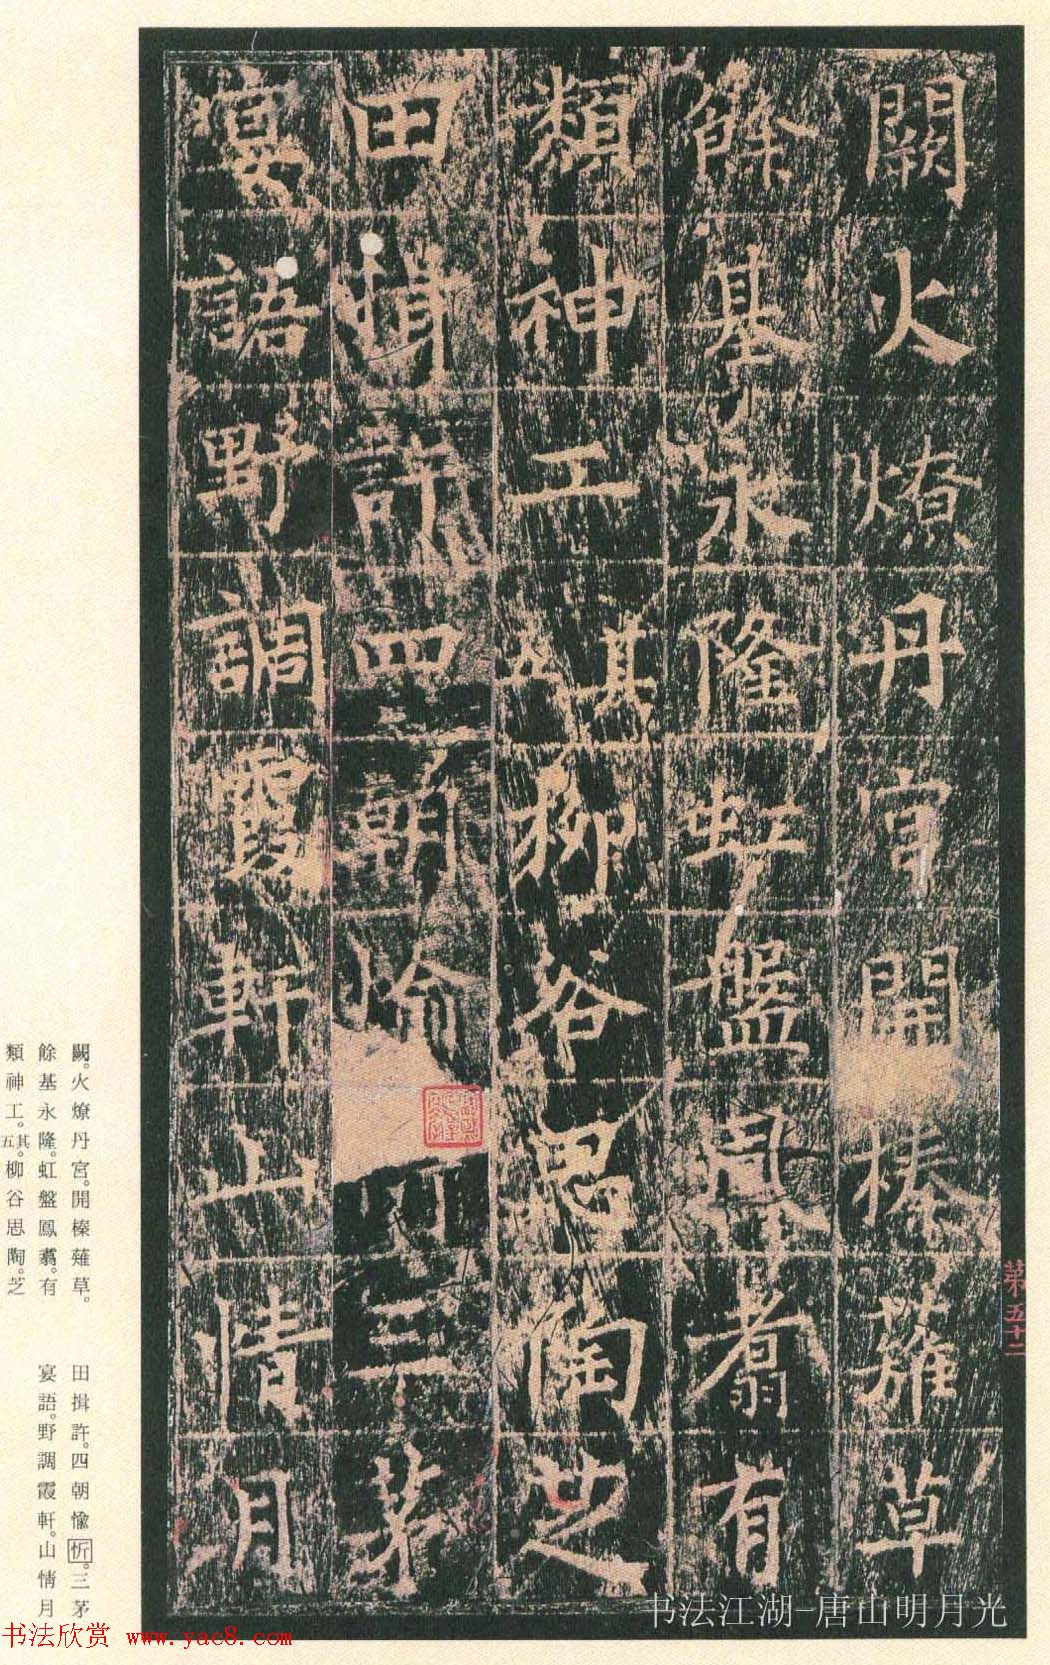 闕火燎丹宮開榛薙草
餘基永隆虹盤鳳翥有
類神工其五柳谷思陶芝
田揖許四朝愉三茅
宴語野調霞軒山情月
第五十二
闕。火燎丹宮。開榛薙草。
餘基永隆。虹盤鳳翥。有
類神工。其五。柳谷思陶。芝
田揖許。四朝愉忻。三茅
宴語。野調霞軒。山情月
书法江湖-唐山明月光
书法欣赏 www.yac8.com